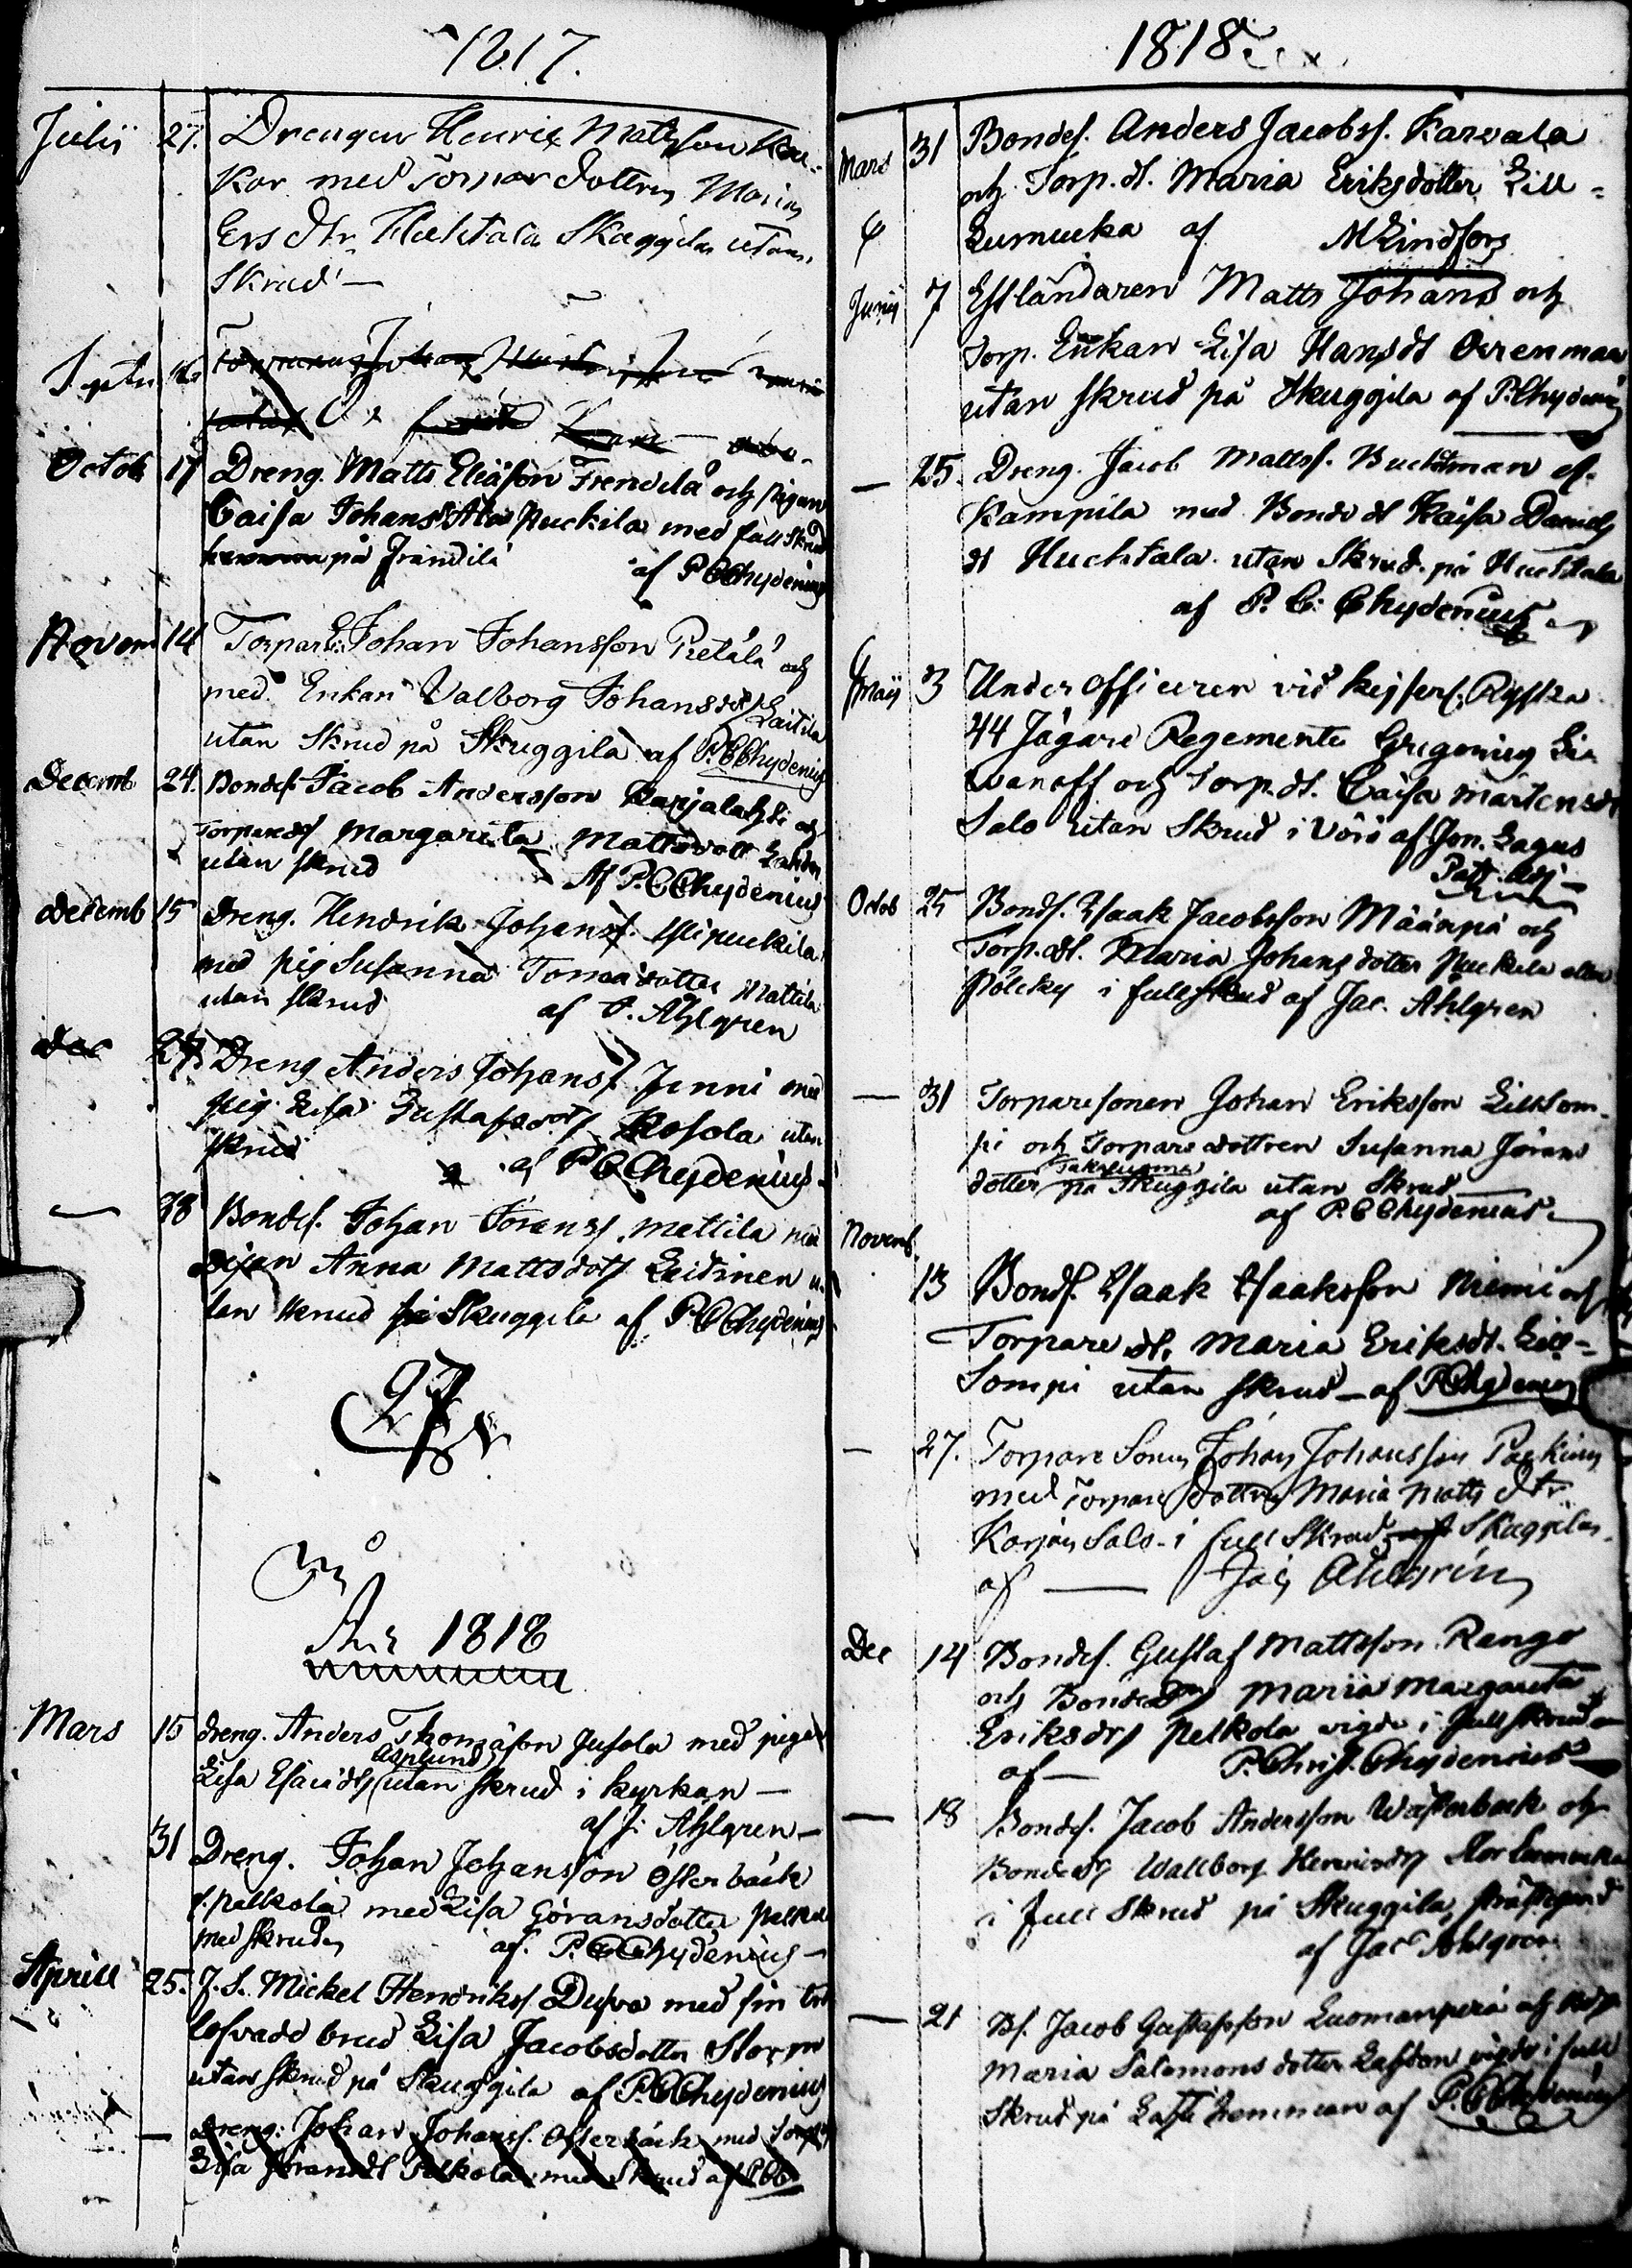 1817.
Julii 27. Drengen Henrik Mattsson
kar med Torpar dottren Maria
Ers dtr Huhtala Skuggila utan
Skrud —
Septr
Octob 17 Dreng. Matts Eliasson Frendilä och pigan
Caisa Johans Puckila med full skrud
på Frändilä af P C Chydenius
Novem 14 Torpar E: Johan Johansson Pietälä och
med Enkan Valborg Johansdr Laitila
utan Skrud på Skuggila af P. C Chydenius
Decemb 24. Bondes. Jacob Andersson och
Torparedr Margareta Mattsdott
utan skrud Af P. C Chydenius
decemb 15 Dreng. Hendrik Johanss. Ylipuckila
med pig Susanna Tomasdotter Mattila
utan skrud af J. Ahlgren
dec 27. Dreng Anders Johanss. Jenni med
pig. Lisa Gustafsdotr Rosola utan
skrud
af P C Chydenius
— 28 Bondes. Johan Mattila med
pigan Anna Mattsdotr Leidinen u-
tan skrud på Skuggila af P C Chydenius
27
År 1818
Mars 15 dreng. Anders Thomasson Jusola med pigan
Asplund
Lisa Esaiadtr utan skrud i kyrkan —
af J. Ahlgren —
31 Dreng. Johan Johansson Österback
f. palkola med Lisa Göransdotter palkola
med skruden af. P. C Chydenius —
Aprill 25. J. S. Mickel Hendrikss. Dufva med sin tro
lofvade brud Lisa Jacobsdotter Storm
utan skrud på Skuggila af P. C Chydenius
— dreng. Johan Johanss. Österback med Torp.
Lisa Jöransdr Pelkola med Skrud af P C C
1818
Mars 31 Bondes. Anders Jacobss. Karvala
och Torp. dt. Maria Eriksdotter Lill-
Lumucka af M Lindfors
Junij 7 Estländaren Matts Johans och
Torp. Enkan Lisa Hansdt Orrenmaa
utan skrud på Skuggila af P. Chydenius
— 25. Dreng. Jacob Mattss. Buckman af
Kampila med Bonde dt Kaisa Daniels
dt Huchtala utan Skrud på Huchtala
af P. C. Chydenius
Maij 3 Under officeren vid kejserl. Ryska
44 Jägare Regemente Gregorius
wanoff och Torp. dt. Caisa Mårtensdr
Salo utan Skrud i Vörå af Jon. Lagus
Past. Adj —
Octob 25 Bonds. Isaak Jacobsson Määnpä och
Torp. dt. Maria Johans dotter Puckila eller
Pölcky i full skrud af Jac. Ahlgren
— 31 Torparesonen Johan Eriksson Lillsom-
pi och Torpare dottren Susanna Jörans
dotter på Skuggila utan Skrud
af P. C Chydenius
Novemb.
13 Bonds. Isaak Isaksson Niemi och
Torpare dt. Maria Eriksdt. Lill-
Sompi utan skrud — af P Chydenius
— 27. Torpare Sonen Johan Johansson
med Torpare dottren Maria Matts dtr
Korjän Salo i full Skrud Skuggilas
af — Jac Ahlgren
Dec 14 Bondes. Gustaf Mattsson Rengo
och Bondedr Maria Margareta
Eriksdr Pelkola vigde i full skrud
af — P. Christ. Chydenius
— 18 Bondes. Jacob Andersson Wästerback och
Bondedr Wallborg Henricsdr Stor Lumucka
i full Skrud på Skuggila prästegård
af Jac Ahlgren
— 21 Bs. Jacob Gustafsson Luomanperä och
Maria Salomons dotter Lassdon vigde i full
Skrud på hemman af P. C Chydenius